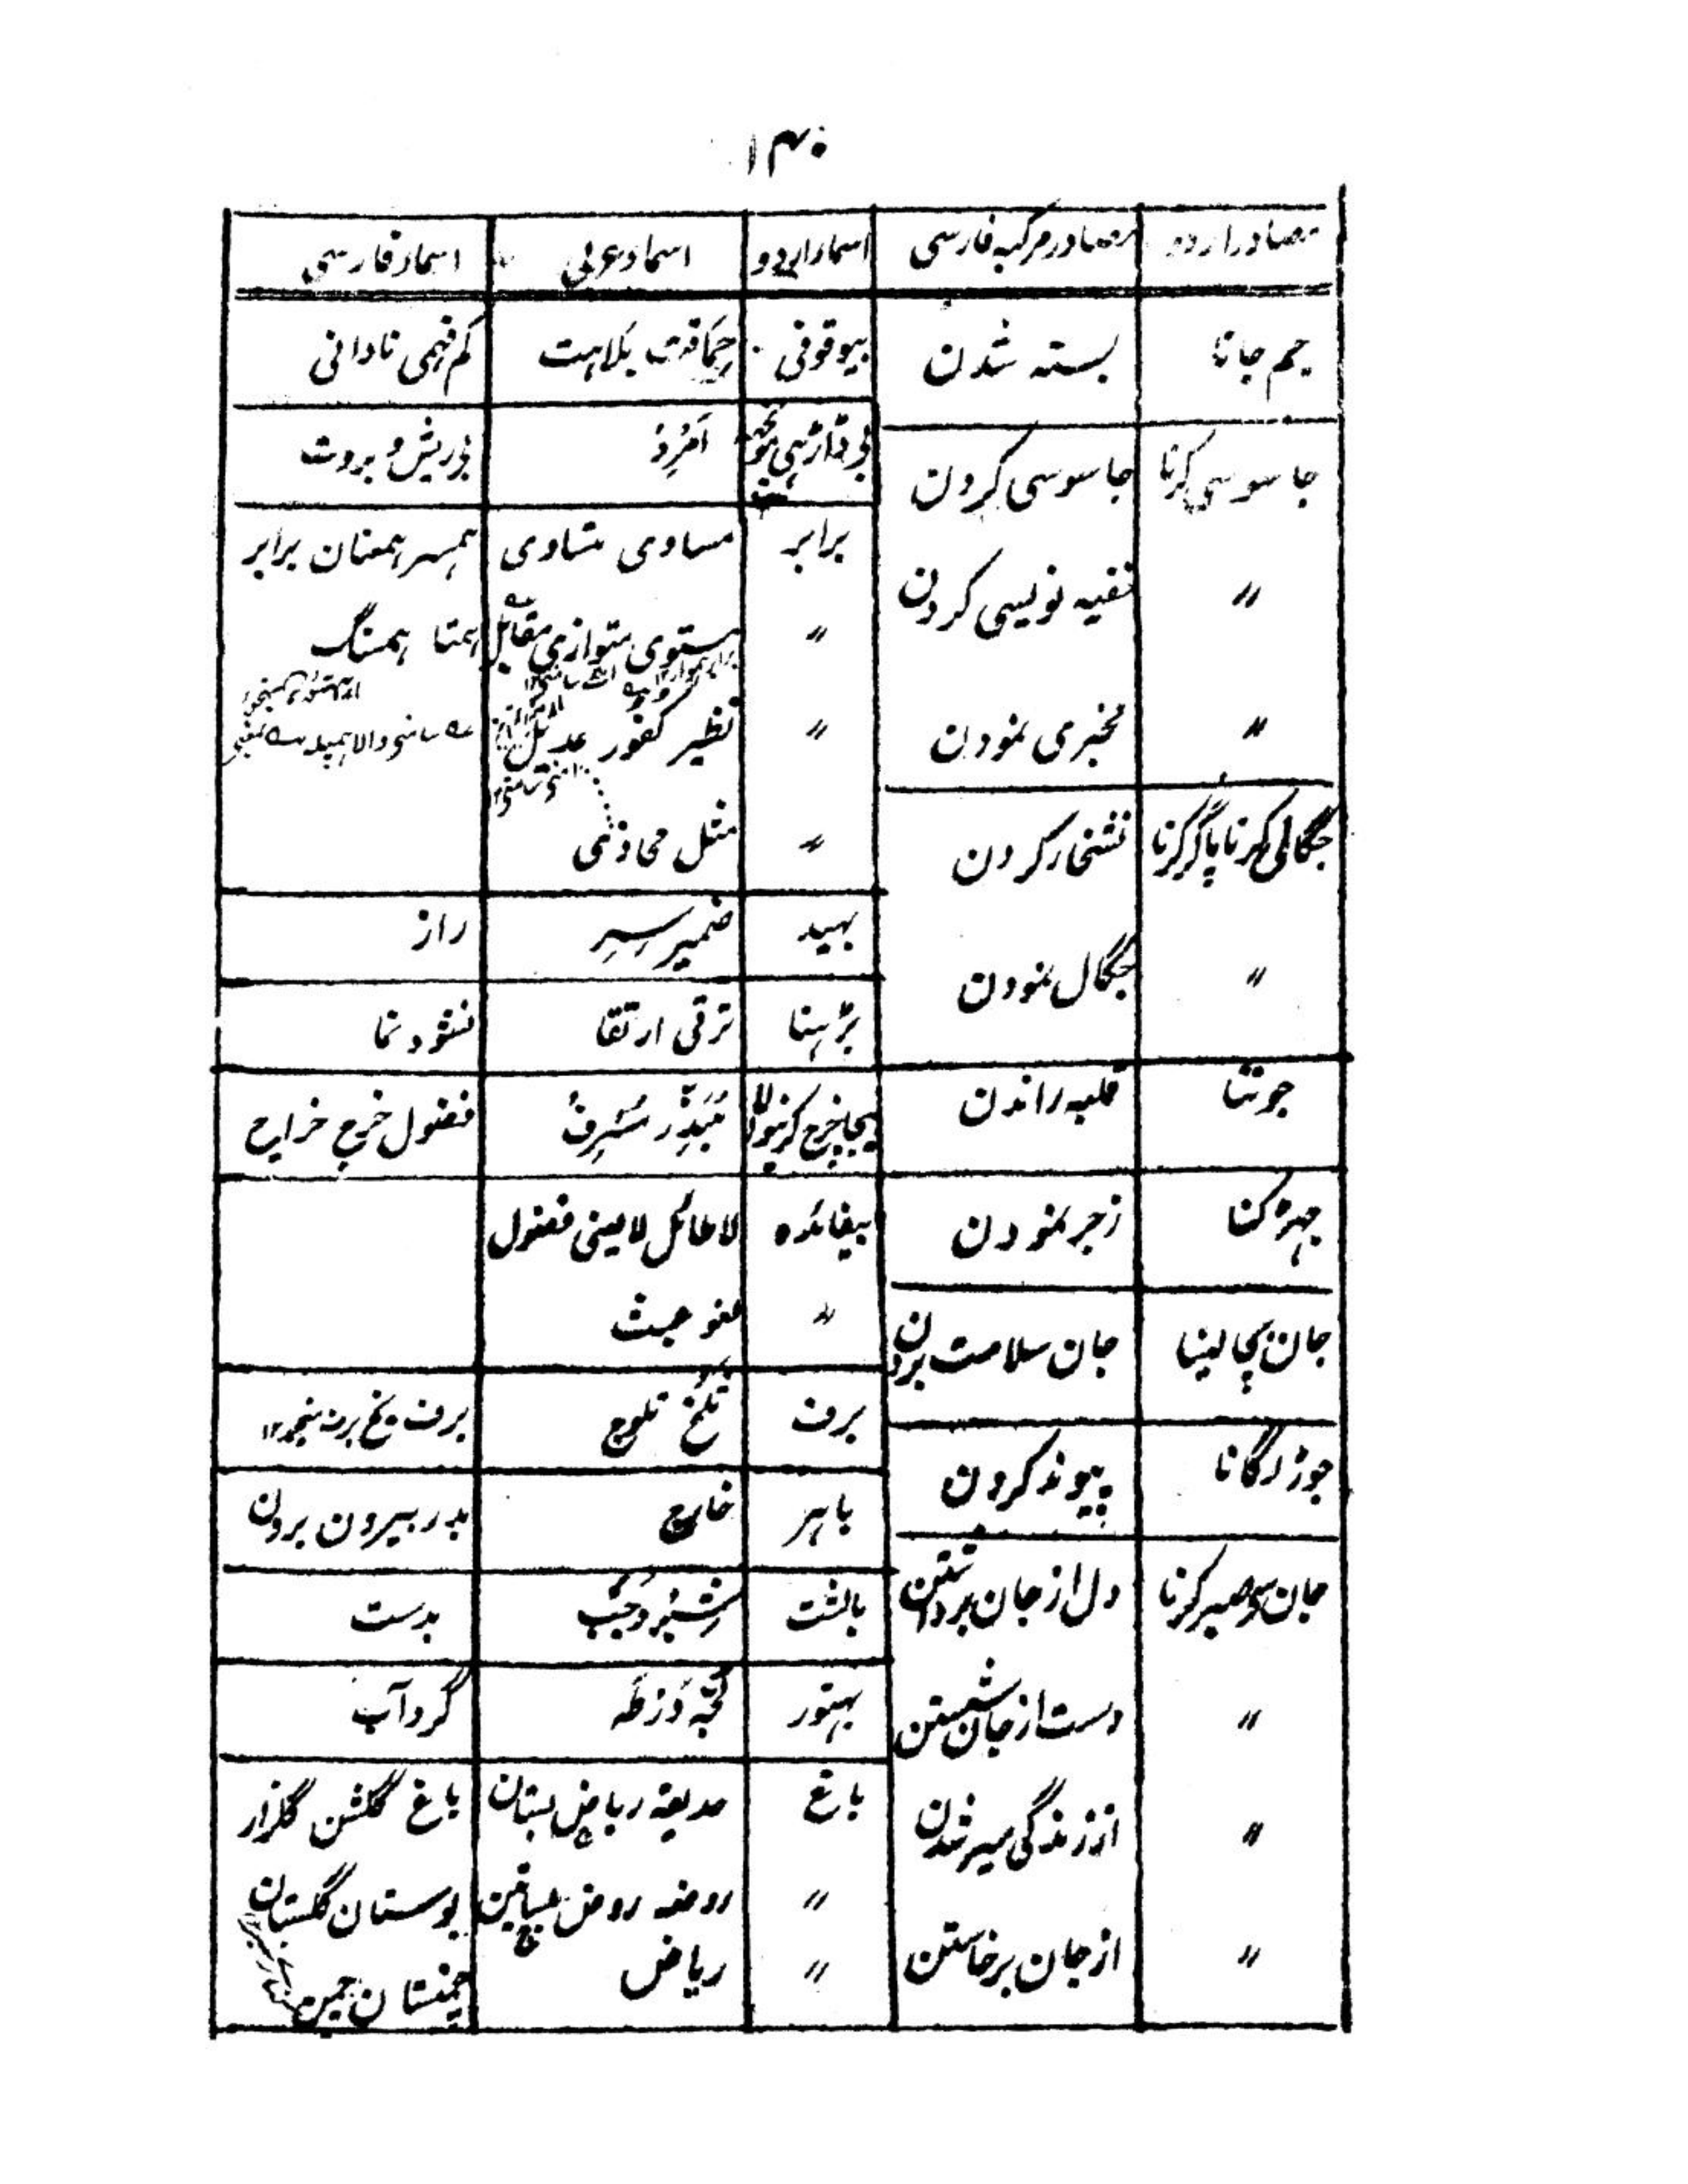 ۱۴۰
مصادر اردو	مصادر مرکبہ فارسی	اسماء اردو	اسماء عربی	اسماء فارسی
جم جانا	بستہ شدن	بیوقوفی	حماقت بلاہت	کم فہمی نادانی
جاسوسی کرنا	جاسوسی کردن	بی ڈاڑہی	اَمْرَدْ	بی ریش و بروت
〃	خفیہ نویسی کردن	برابر	مساوی متساوی	ہمسر ہمعنان برابر
〃	مخبری نمودن	〃	مستوی متوازی مقابل	ہمتا ہمسنگ
〃	نظیر کفور عدیل
〃	مثل محاذی
جگالی کرنا پاگر کرنا	نشخار کردن	بہید	ضمیر سِر	راز
〃	جگال نمودن	بڑہنا	ترقی ارتقا	نشو و نما
جوتنا	قلبہ راندن	بیجا خرچ کرنیوالا	مُبَذِّر مُسْرِفْ	فضول خرچ خراج
جہڑکنا	زجر نمودن	بیفائدہ	لا طائل لایعنی فضول
جان بچا لینا	جان سلامت بردن	〃	عبث
جوڑ لگانا	پیوند کردن	برف	ثلج ثلوج	برف یخ
باہر	خارج	بدر بیرون برون
جان پر صبر کرنا	دل از جان برداشتن	بالشت	شِبْر	بدست
〃	دست از جان شستن	بہنور	لُجّہ وَرْطَہ	گرداب
〃	از زندگی سیر شدن	باغ	حدیقہ ریاض بستان	باغ گلشن گلزار
〃	از جان برخاستن	〃	روضہ روض بساتین	بوستان گلستان
〃	ریاض	چمنستان چمن